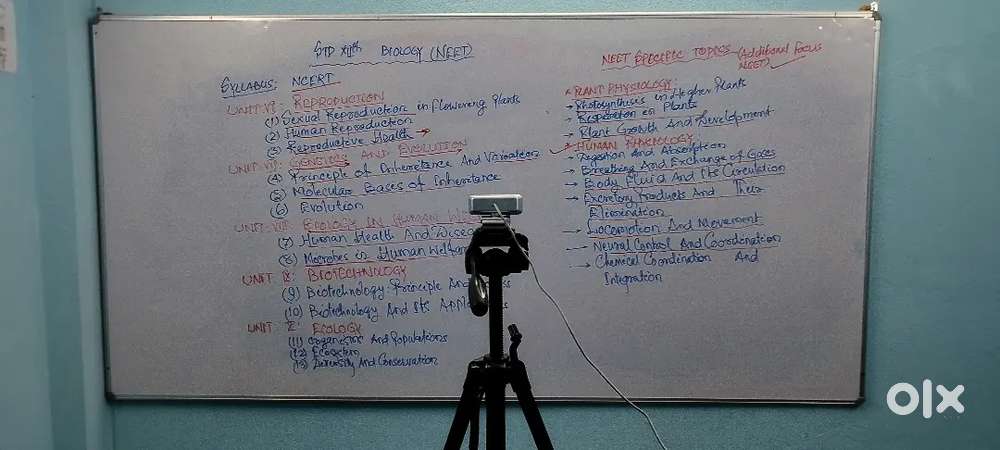 STD XIIth BIOLOGY (NEET)
SYLLABUS: NCERT
UNIT VI: REPRODUCTION
(1) Sexual Reproduction in flowering Plants
(2) Human Reproduction
(3) Reproductive Health →
UNIT VII: GENETICS AND EVOLUTION
(4) Principle of Inheritance And Variation
(5) Molecular Bases of Inheritance
(6) Evolution
UNIT VIII: BIOLOGY IN HUMAN
(7) Human Health And
(8) Microbes in Human Welfare
UNIT IX: BIOTECHNOLOGY
(9) Biotechnology: Principle And
(10) Biotechnology And Its
UNIT X: ECOLOGY
(11) Organisms And Populations
(12) Ecosystem
(13) Diversity And Conservation
NEET SPECIFIC TOPICS (Additional Focus
NEET)
PLANT PHYSIOLOGY:
→ Photosynthesis in Higher Plants
→ Respiration in Plants
→ Plant Growth And Development
HUMAN PHYSIOLOGY
→ Digestion And Absorption
→ Breathing And Exchange of Gases
→ Body Fluid And Its Circulation
→ Excretory Products And Their
Elimination
→ Locomotion And Movement
→ Neural Control And Coordination
→ Chemical Coordination And
Integration
olx